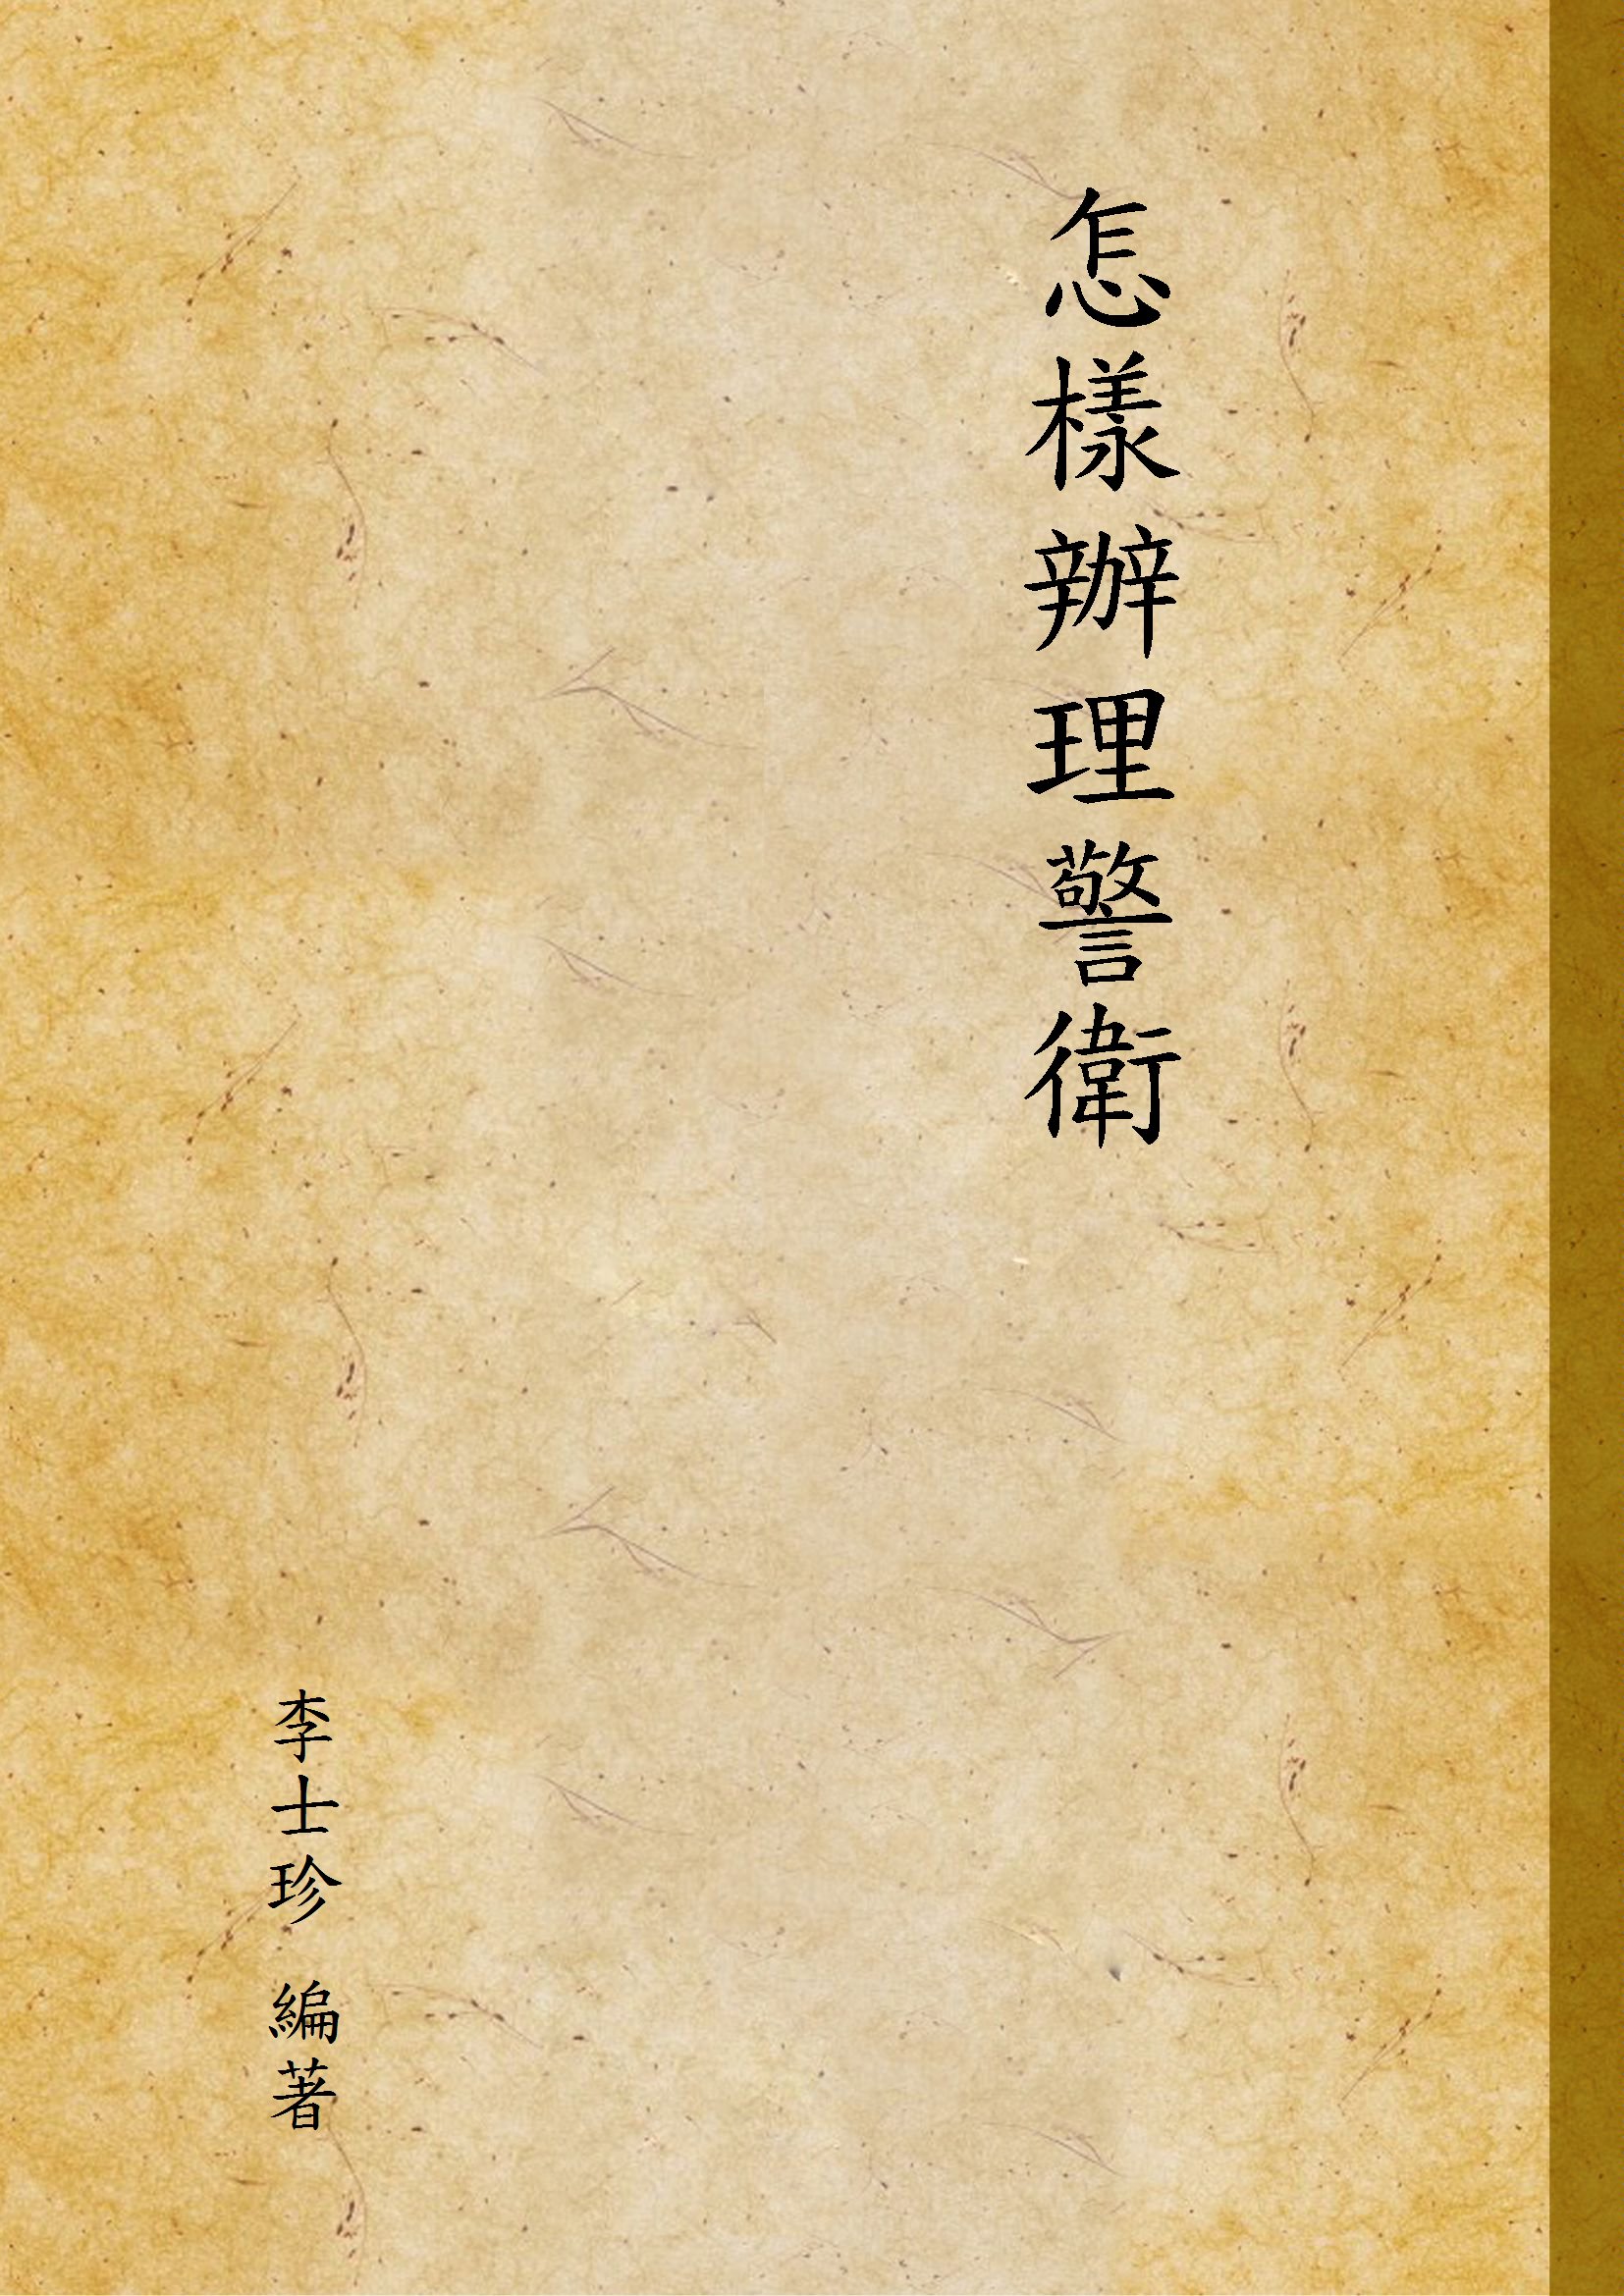 怎樣辦理警衛
李士珍 編著